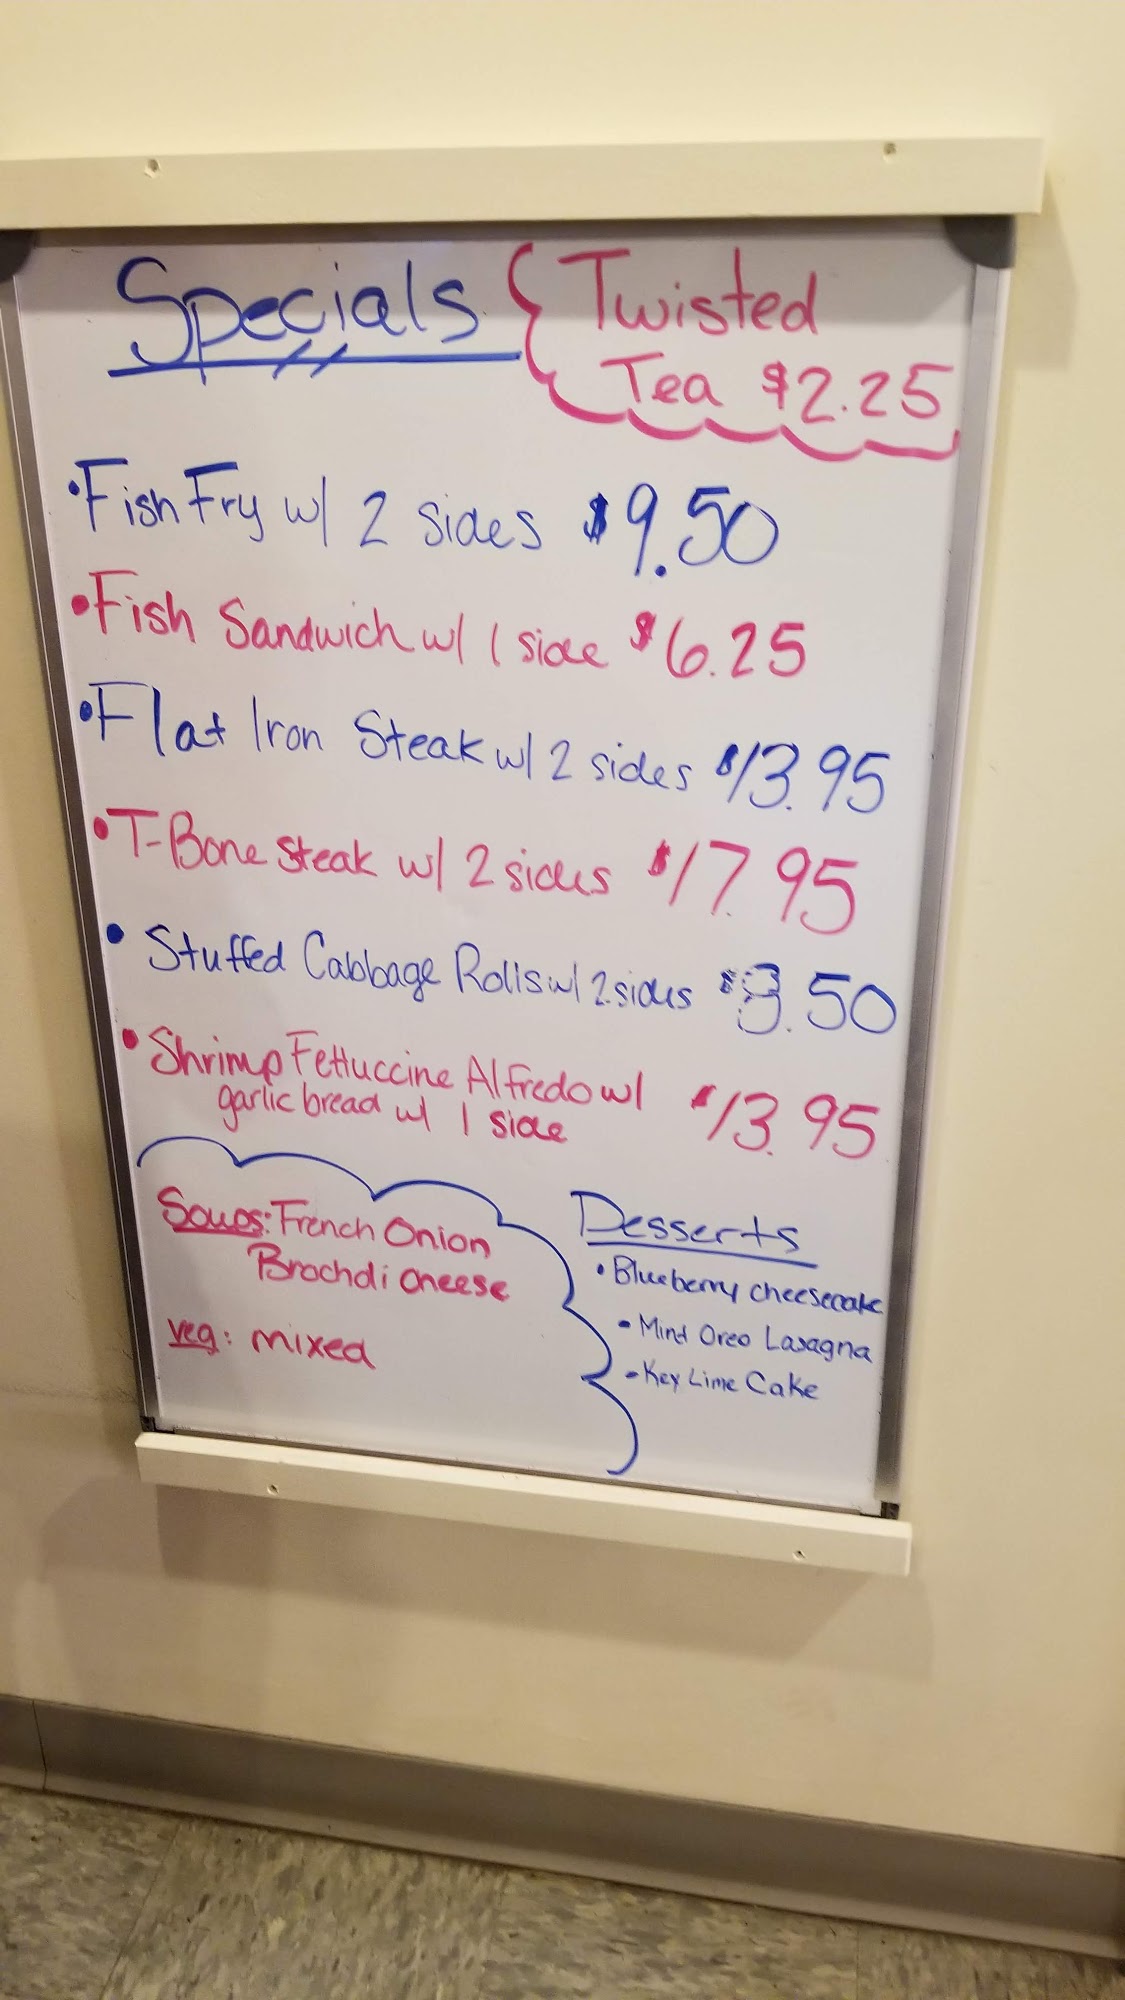 Specials
Twisted
Tea $2.25
• Fish Fry w/ 2 sides $9.50
• Fish Sandwich w/ 1 side $6.25
• Flat Iron Steak w/ 2 sides $13.95
• T-Bone Steak w/ 2 sides $17.95
• Stuffed Cabbage Rolls w/ 2 sides
• Shrimp Fettuccine Alfredo w/ $13.95
garlic bread w/ 1 side
Soups: French Onion
Brochdi cheese
veg: mixed
Desserts
• Blueberry cheesecake
• Mind Oreo Lasagna
• Key Lime Cake